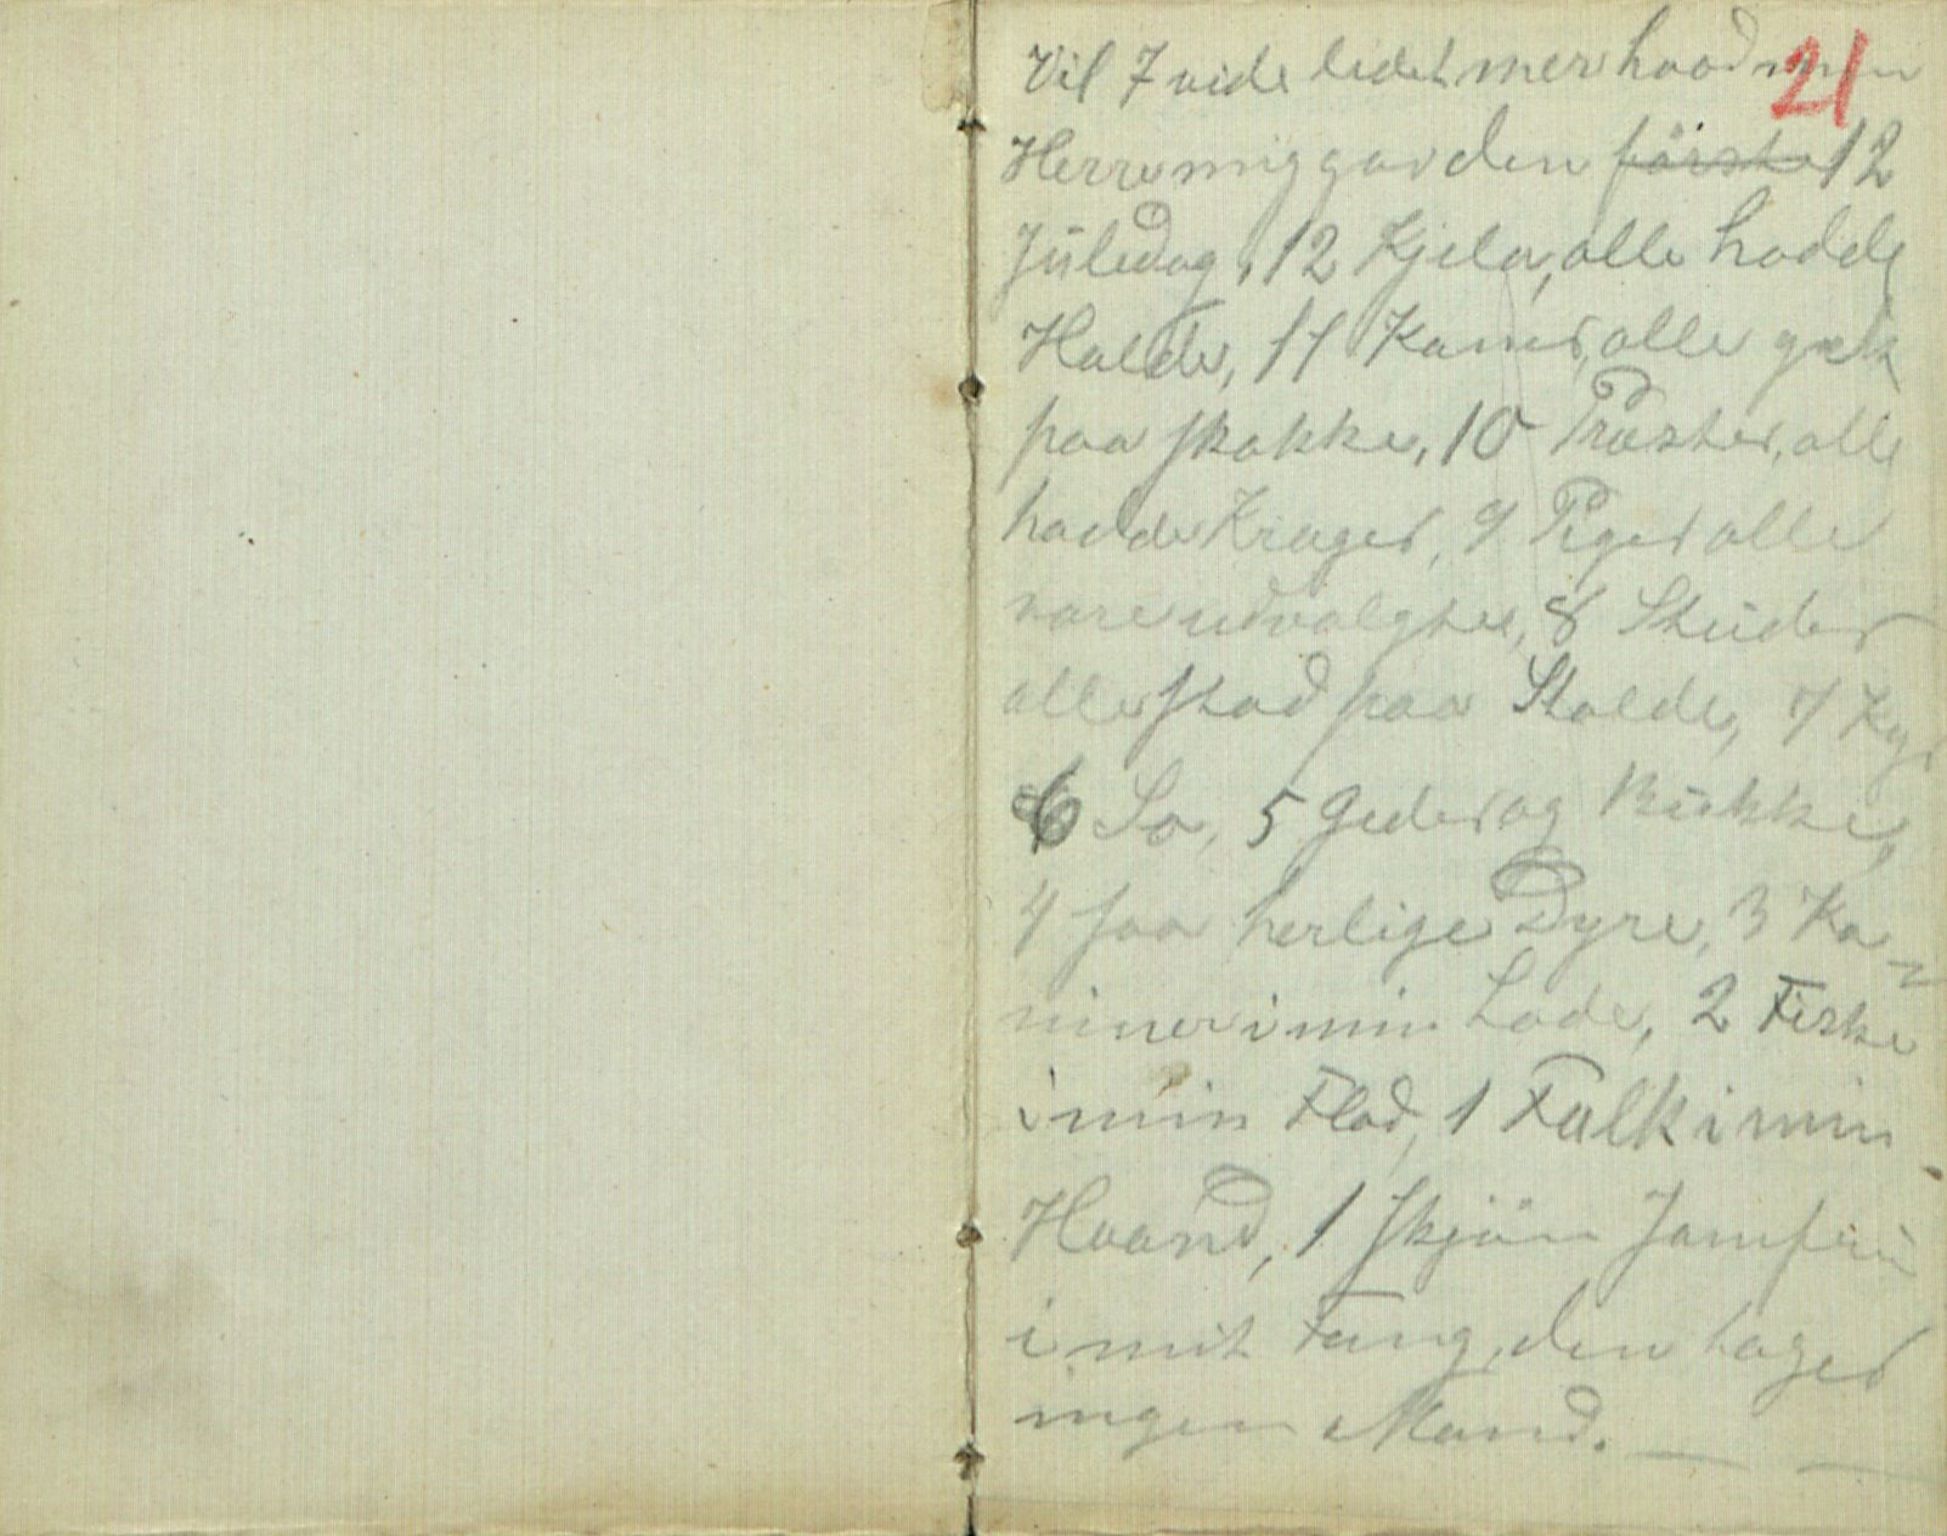 Vil I vide lidet mer hvad min
21
Herre mig gav den förste 12
Juledag, 12 Kjeler, alle hadde
Halde, 11 Kaner, alle gek
paa skakke, 10 Præster, alle
hadde Krager, 9 Piger alle
vare udvalgte, 8 Studer
alle stod paa Stalde, 7 Kyr
6 So, 5 Geder og Bukke,
4 saa herlige Dyre, 3 Ka-
niner i min Lade, 2 Fiske
i min Flod, 1 Falk i min
Haand, 1 skjön Jomfru
i mit Fang, den tager
ingen Mand.